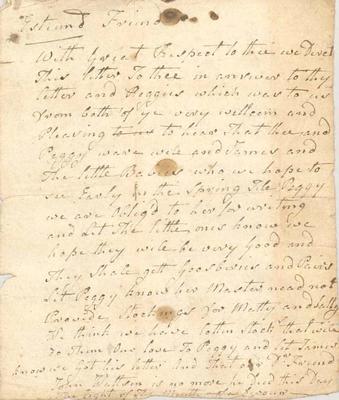 Esteem'd Friend
With Great Respect to thee we Direct
This letter To thee in answer to thy
letter and Peggys which was to us
from both of ye very wellcom and
Pleasing to hear That thee and
Peggy ware well and James and
The little Babies who we hope to
see Early in the Spring Tele Peggy
we are Oblig'd to her for writing
and Let The little ones know we
hope they will be very Good and
They Shall gett Goosberries and Pairs
Let Peggy know her Master need not
Provide Stockings for Matty and Sally
We think we have Cotton Stock that will
do them Our love To Peggy and let James
know we Got his letter And that our Dr Friend
John Watson is no more he Died this Day
The Eight of The Month